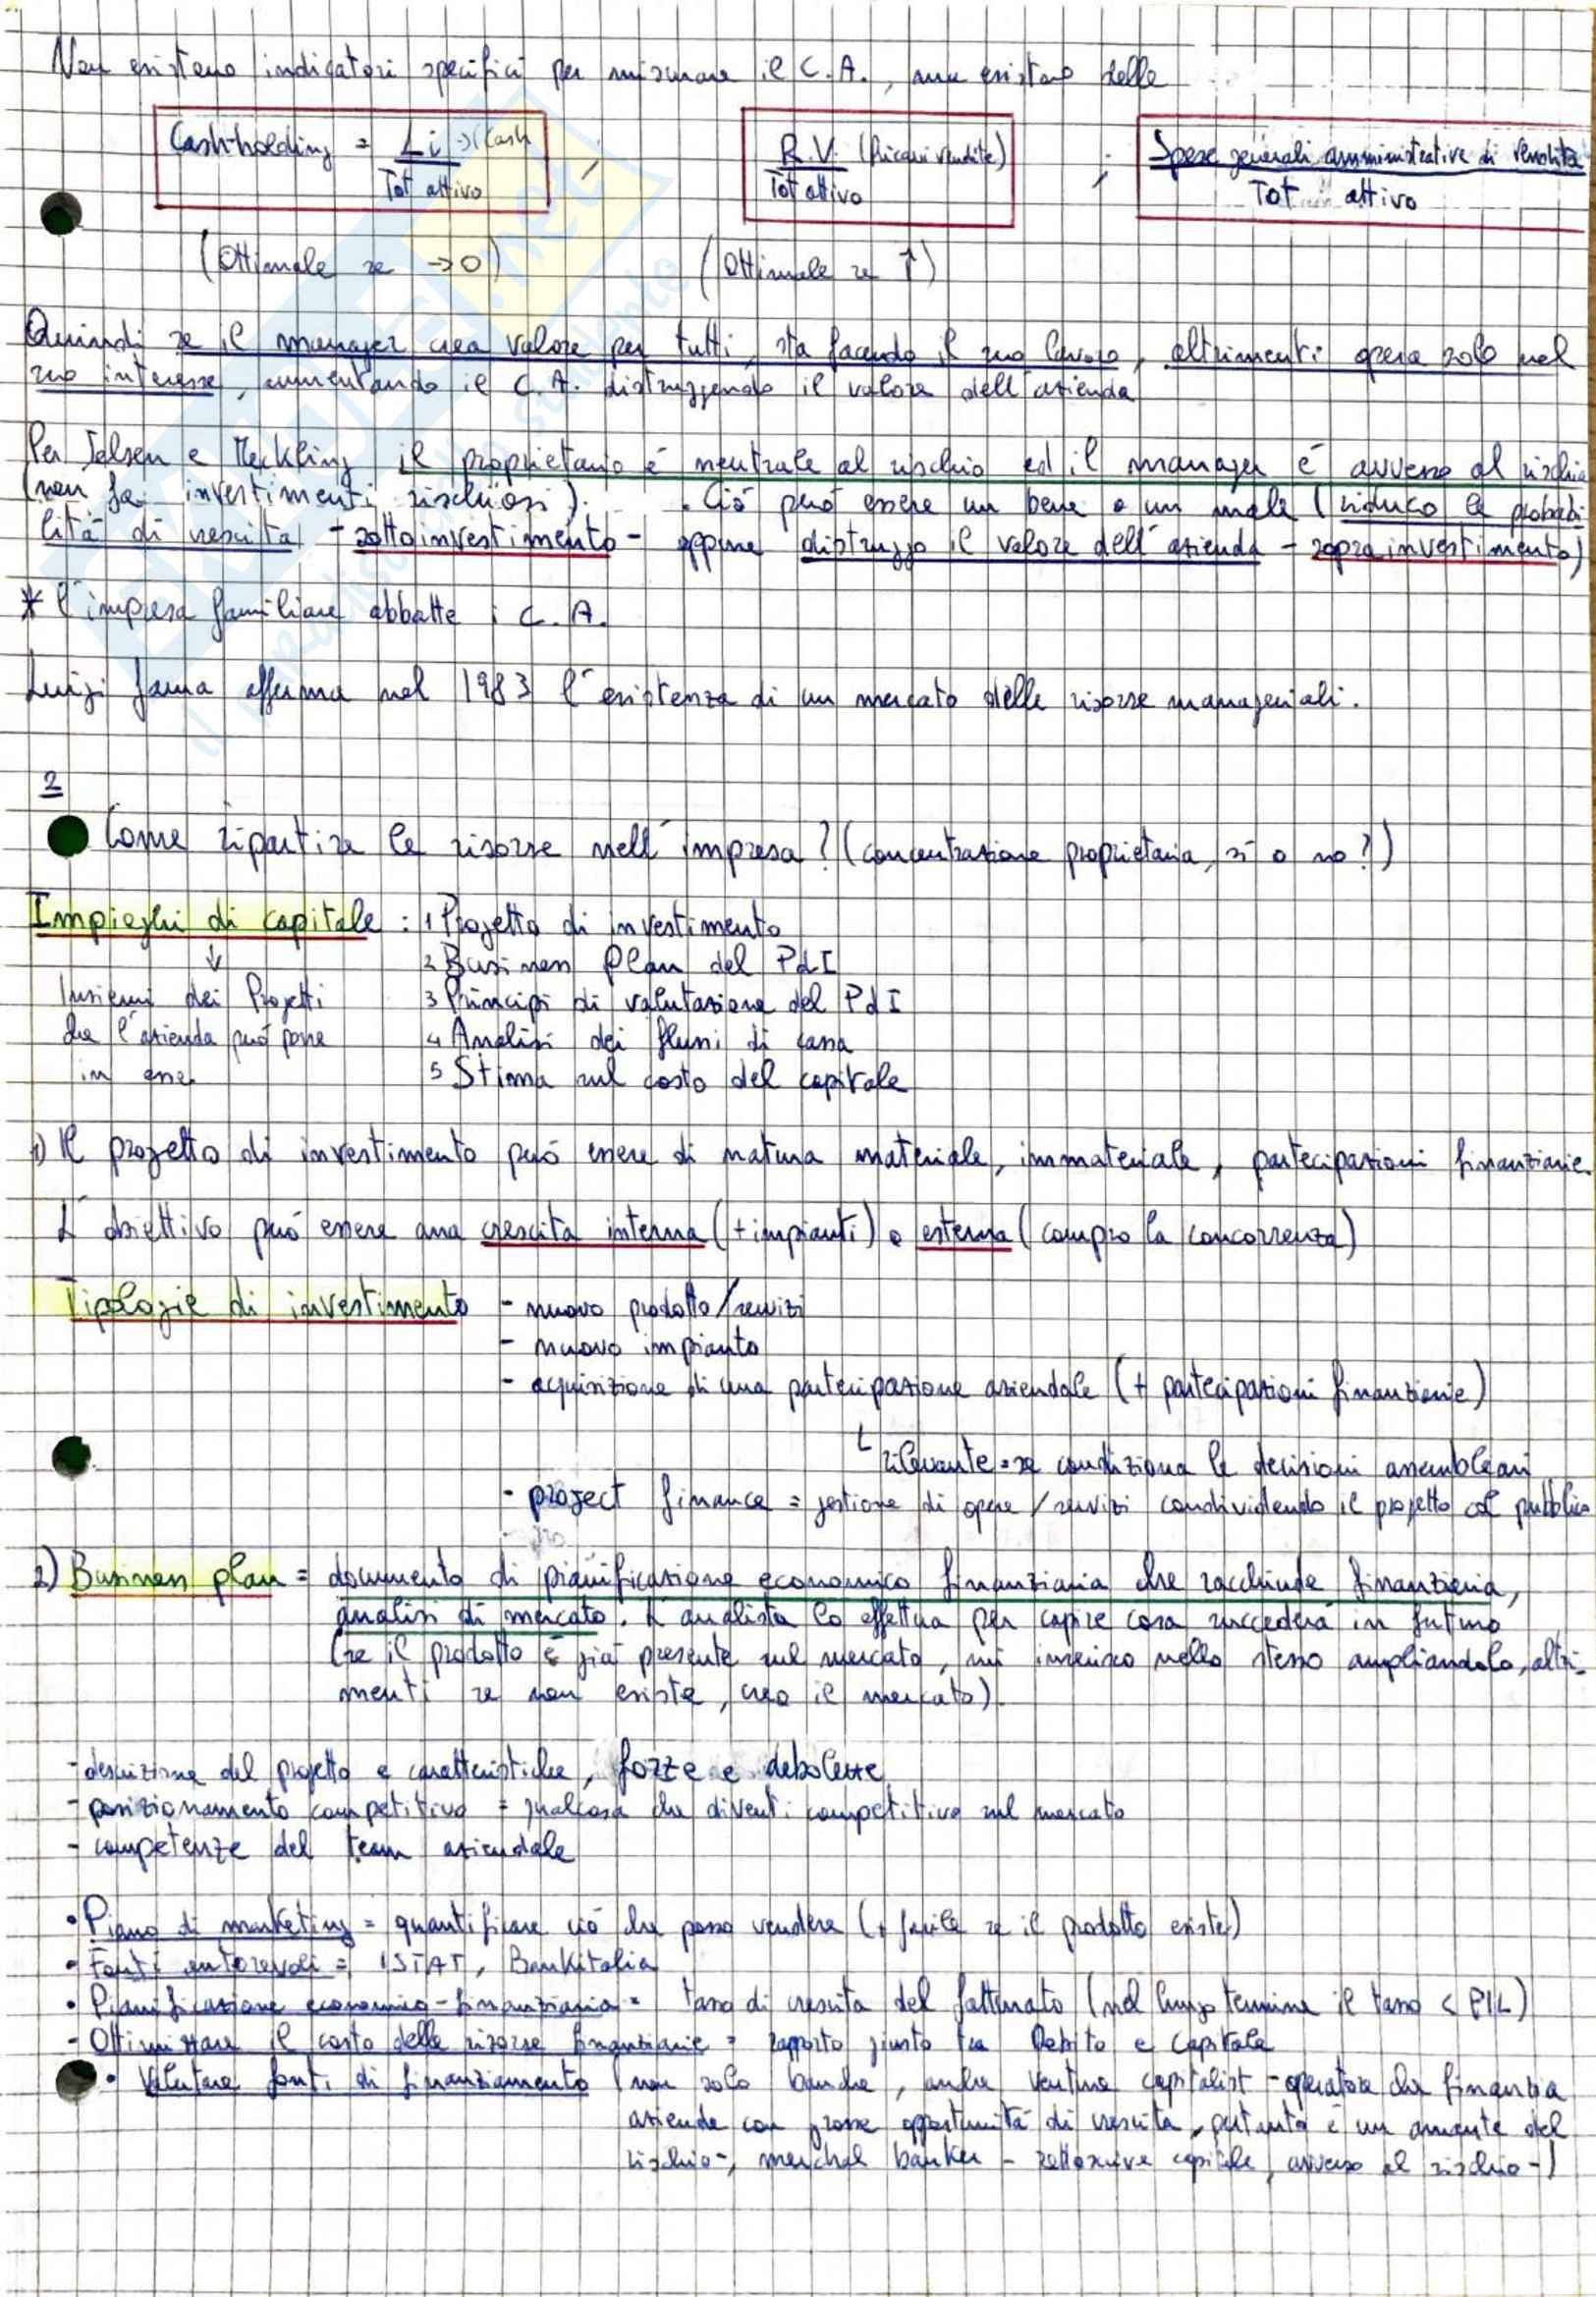 Non esistono indicatori specifici per misurare il C.A., ma esistono delle
Cash-holding = Li → (Cash / Tot attivo ; R.V. (Ricavi vendite) / Tot attivo ; Spese generali amministrative di vendita / Tot attivo
(Ottimale se → 0) (Ottimale se ↑)
Quindi se il manager crea valore per tutti, sta facendo il suo lavoro, altrimenti opera solo nel
suo interesse, aumentando il C.A. distruggendo il valore dell'azienda
Per Jelsen e Meckling il proprietario é neutrale al rischio ed il manager é avverso al rischio
(non fa investimenti rischiosi). Ció puó essere un bene o un male (riduco le probabi
litá di crescita - sottoinvestimento - oppure distruggo il valore dell'azienda - sopra investimento)
* l'impresa familiare abbatte i C.A.
Luigi fama afferma nel 1983 l'esistenza di un mercato delle risorse manageriali.
2
Come ripartire le risorse nell'impresa? (concentrazione proprietaria, sí o no?)
Impieghi di capitale : 1 Progetto di investimento
↓ 2 Business Plan del PdI
Insiemi dei Progetti 3 Principi di valutazione del PdI
che l'azienda puó porre 4 Analisi dei flussi di cassa
in essere 5 Stima sul costo del capitale
1) Il progetto di investimento puó essere di natura materiale, immateriale, partecipazioni finanziarie
L'obiettivo puó essere una crescita interna (+ impianti) o esterna (compro la concorrenza)
Tipologie di investimento - nuovo prodotto/servizi
- nuovo impianto
- acquisizione di una partecipazione aziendale (+ partecipazioni finanziarie)
rilevante = se condiziona le decisioni assembleari
- project finance = gestione di opere / servizi condividendo il progetto col pubblico
2) Business plan = documento di pianificazione economico finanziaria che racchiude finanziaria,
analisi di mercato. L'analista lo effettua per capire cosa succederá in futuro
(se il prodotto é giá presente sul mercato, mi inserisco nello stesso ampliandolo, altri-
menti se non esiste, creo il mercato)
- descrizione del progetto e caratteristiche, forze e debolezze
- posizionamento competitivo = qualcosa che diventi competitivo sul mercato
- competenze del team aziendale
• Piano di marketing = quantificare ció che posso vendere (+ facile se il prodotto esiste)
• Fonti autorevoli = ISTAT, Bankitalia
• Pianificazione economico-finanziaria = tasso di crescita del fatturato (nel lungo termine il tasso < PIL)
- Ottimizzare il costo delle risorse finanziarie = rapporto giusto tra Debito e Capitale
• Valutare fonti di finanziamento (non solo banche, anche venture capitalist - operatore che finanzia
aziende con grosse opportunitá di crescita, pertanto é un amante del
rischio-, merchal banker - capitale, avverso al rischio -)